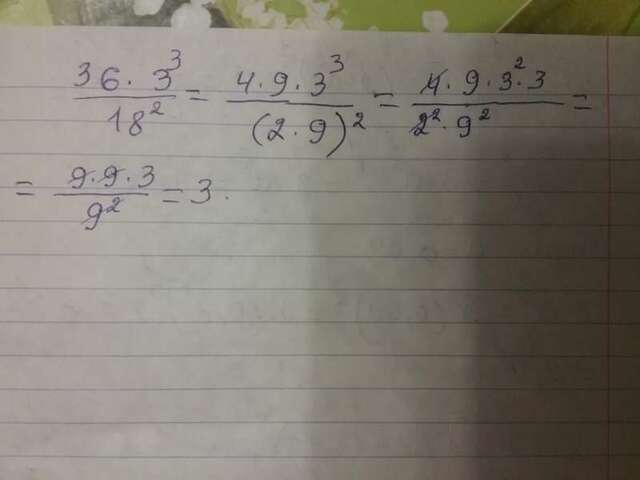 36 · 3³ / 18² = 4 · 9 · 3³ / (2 · 9)² = 4 · 9 · 3² · 3 / 2² · 9² =
= 9 · 9 · 3 / 9² = 3.